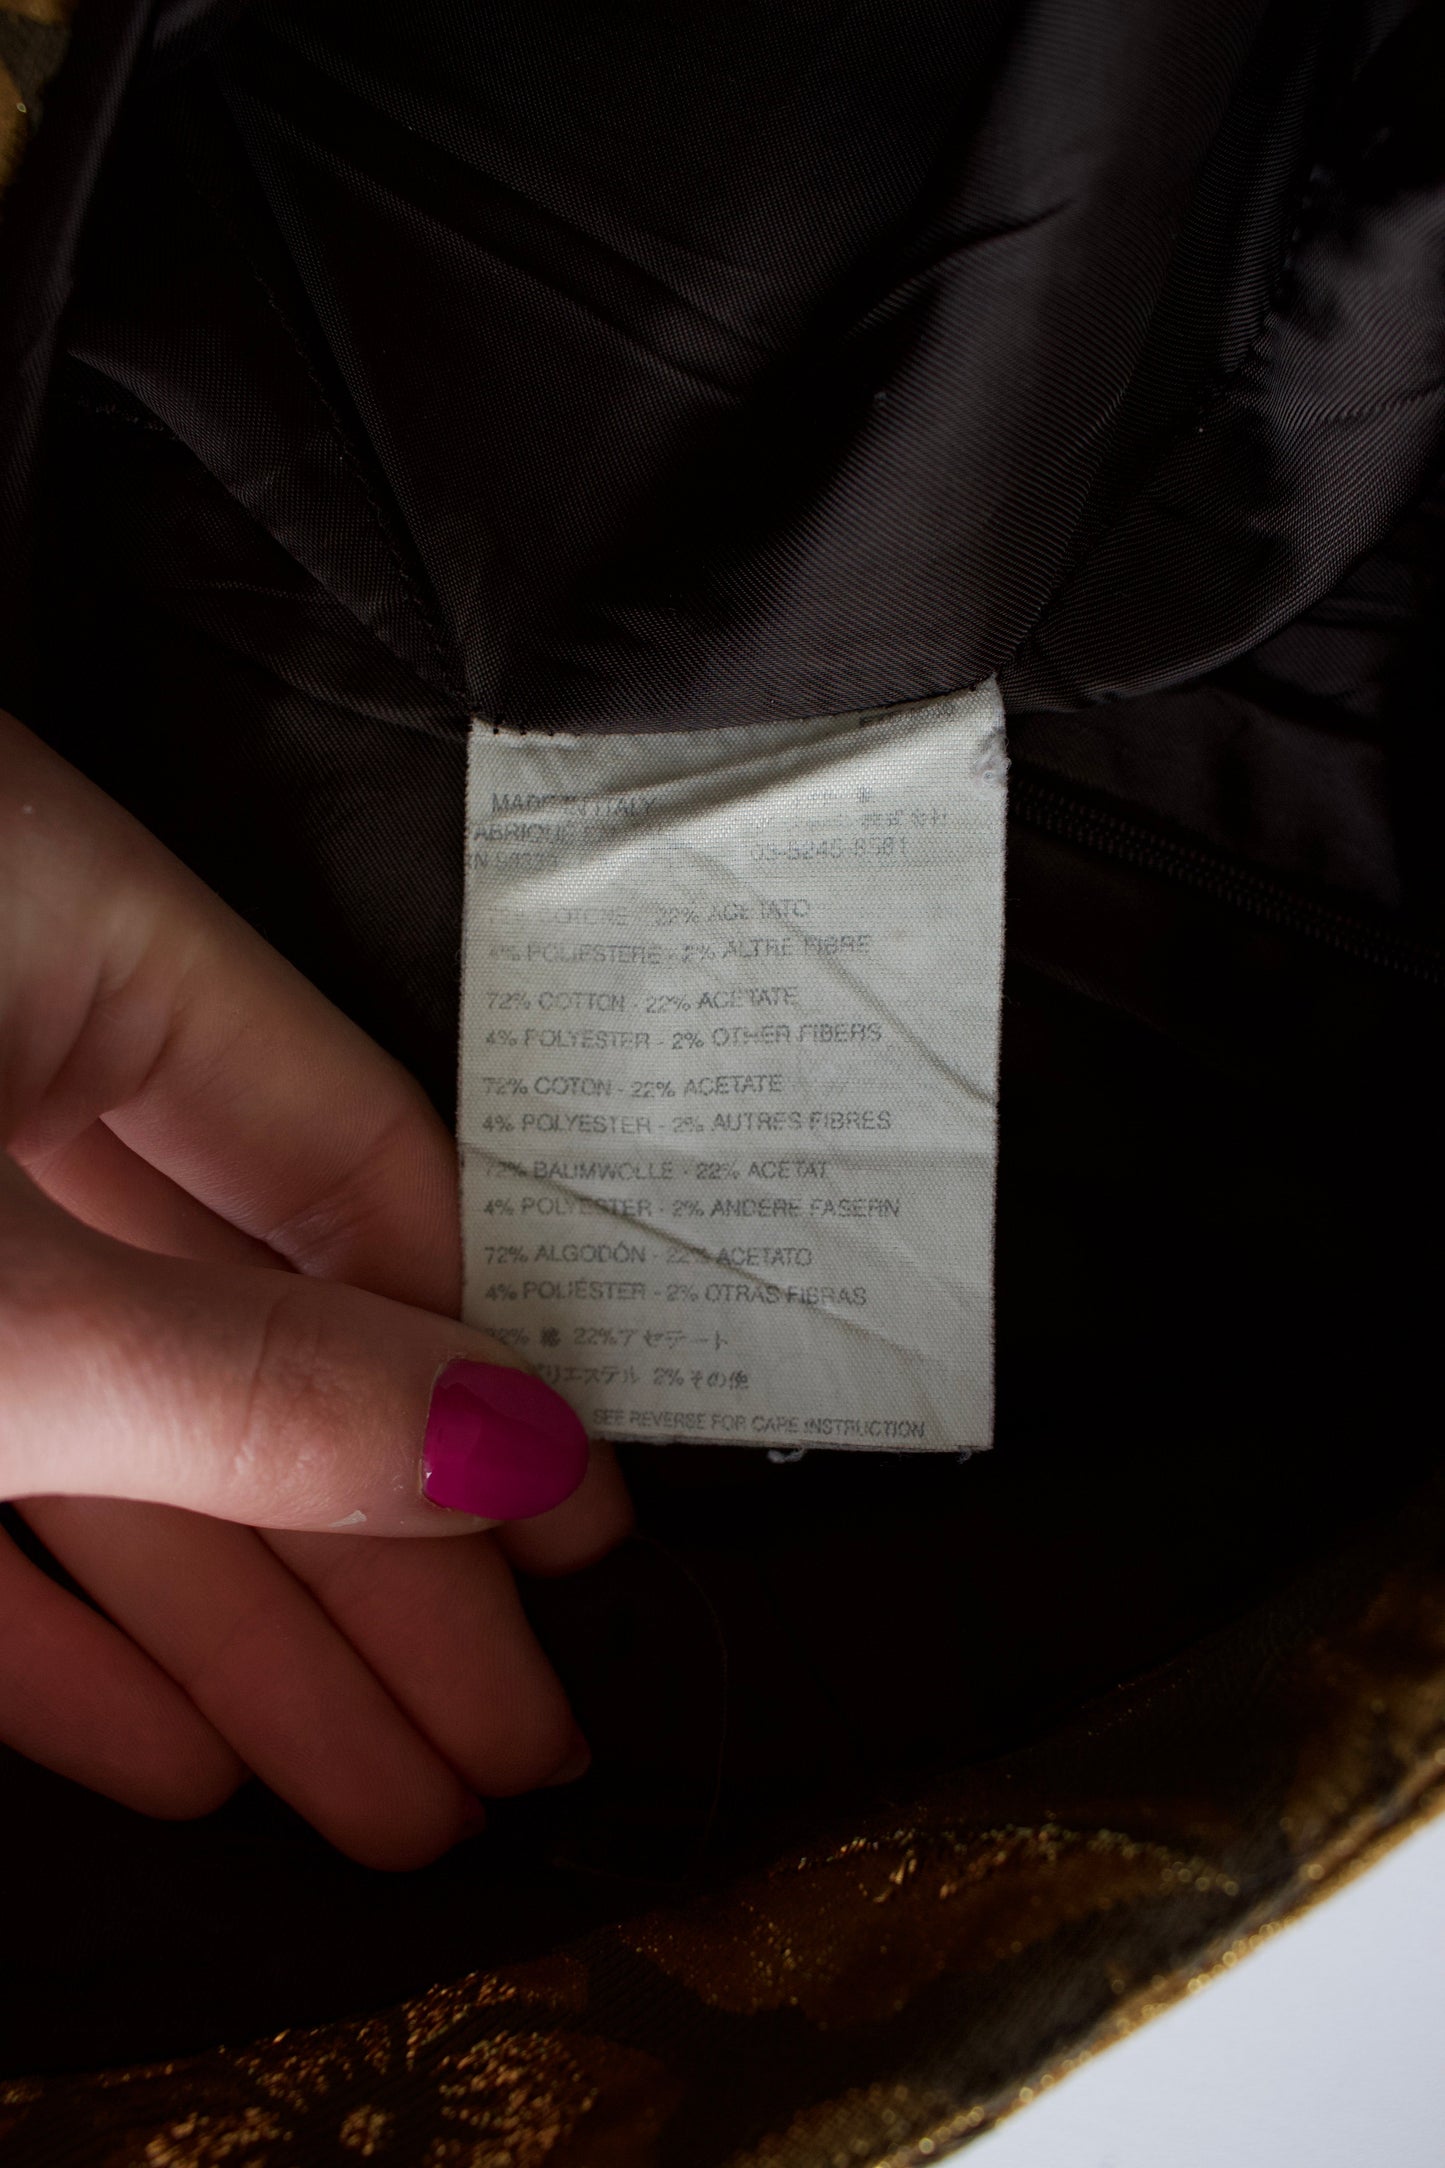 MADE IN ITALY
03-5246-8581
72% COTONE - 22% ACETATO
4% POLIESTERE - 2% ALTRE FIBRE
72% COTTON - 22% ACETATE
4% POLYESTER - 2% OTHER FIBERS
72% COTON - 22% ACETATE
4% POLYESTER - 2% AUTRES FIBRES
72% BAUMWOLLE - 22% ACETAT
4% POLYESTER - 2% ANDERE FASERN
72% ALGODÓN - 22% ACETATO
4% POLIÉSTER - 2% OTRAS FIBRAS
72% 綿 22%アセテート
ポリエステル 2%その他
SEE REVERSE FOR CARE INSTRUCTION